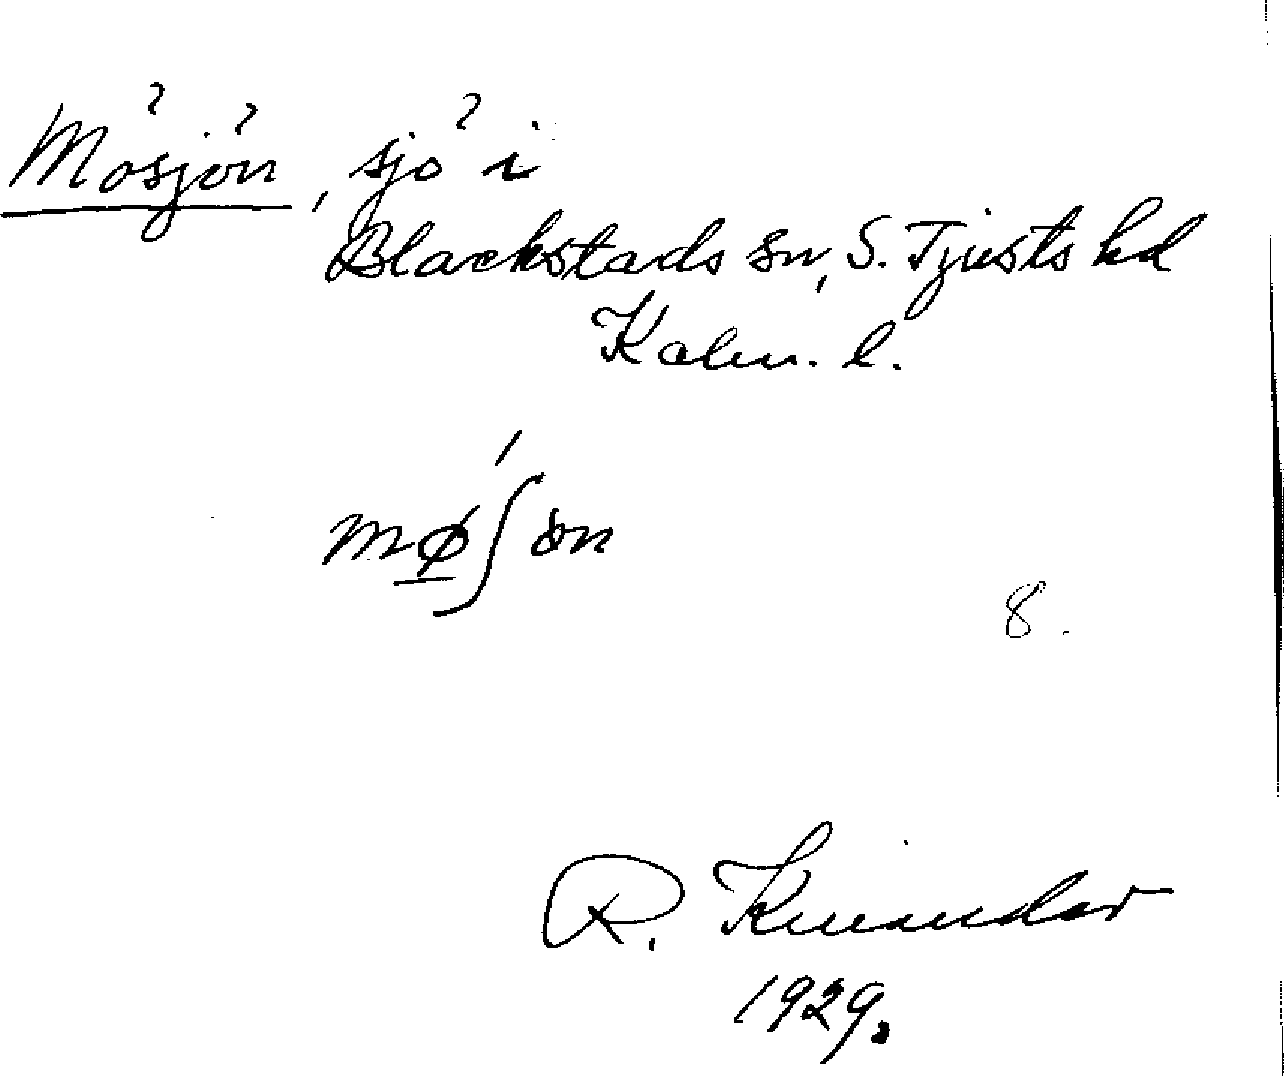 Mösjön, sjö i
Blackstads sn, S. Tjusts hd
Kalm. l.
mø̱ʃ́ ön
8.
R. Kinander
1929.